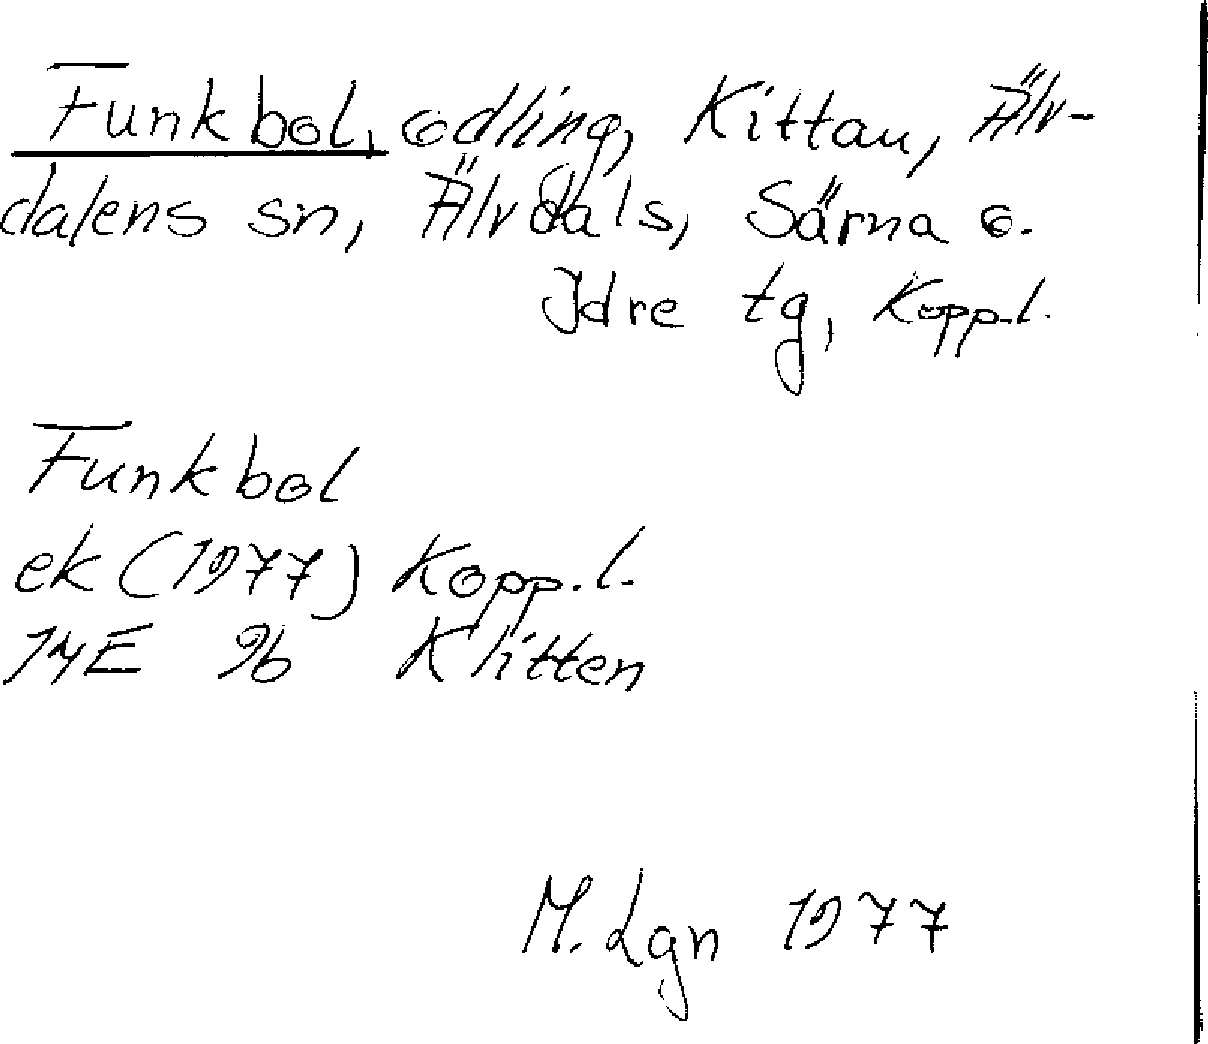 Funkbol, odling, Kittan, Älv-
dalens sn, Älvdals, Särna o.
Idre tg, Kopp.l.
Funkbol
ek (1977) Kopp.l.
14E 9b Klitten
M. Lgn 1977